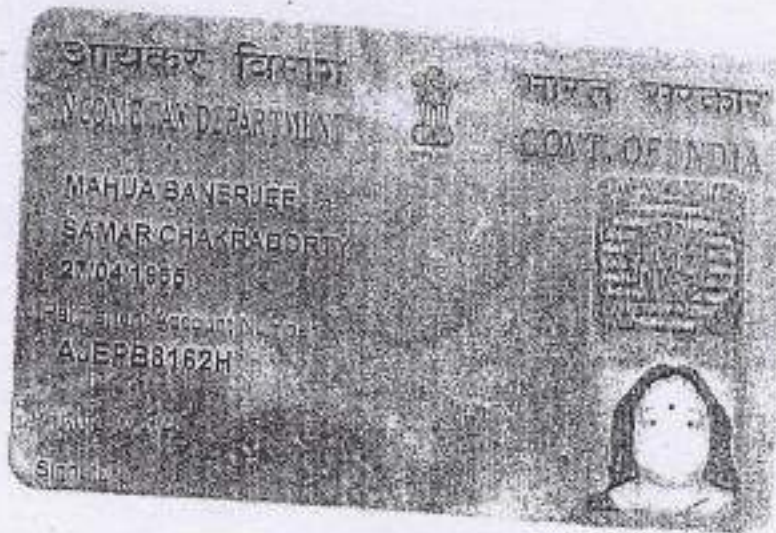 आयकर विभाग
INCOME TAX DEPARTMENT
भारत सरकार
GOVT. OF INDIA
MAHUA BANERJEE
SAMAR CHAKRABORTY
Permanent Account Number
AJEPB8162H